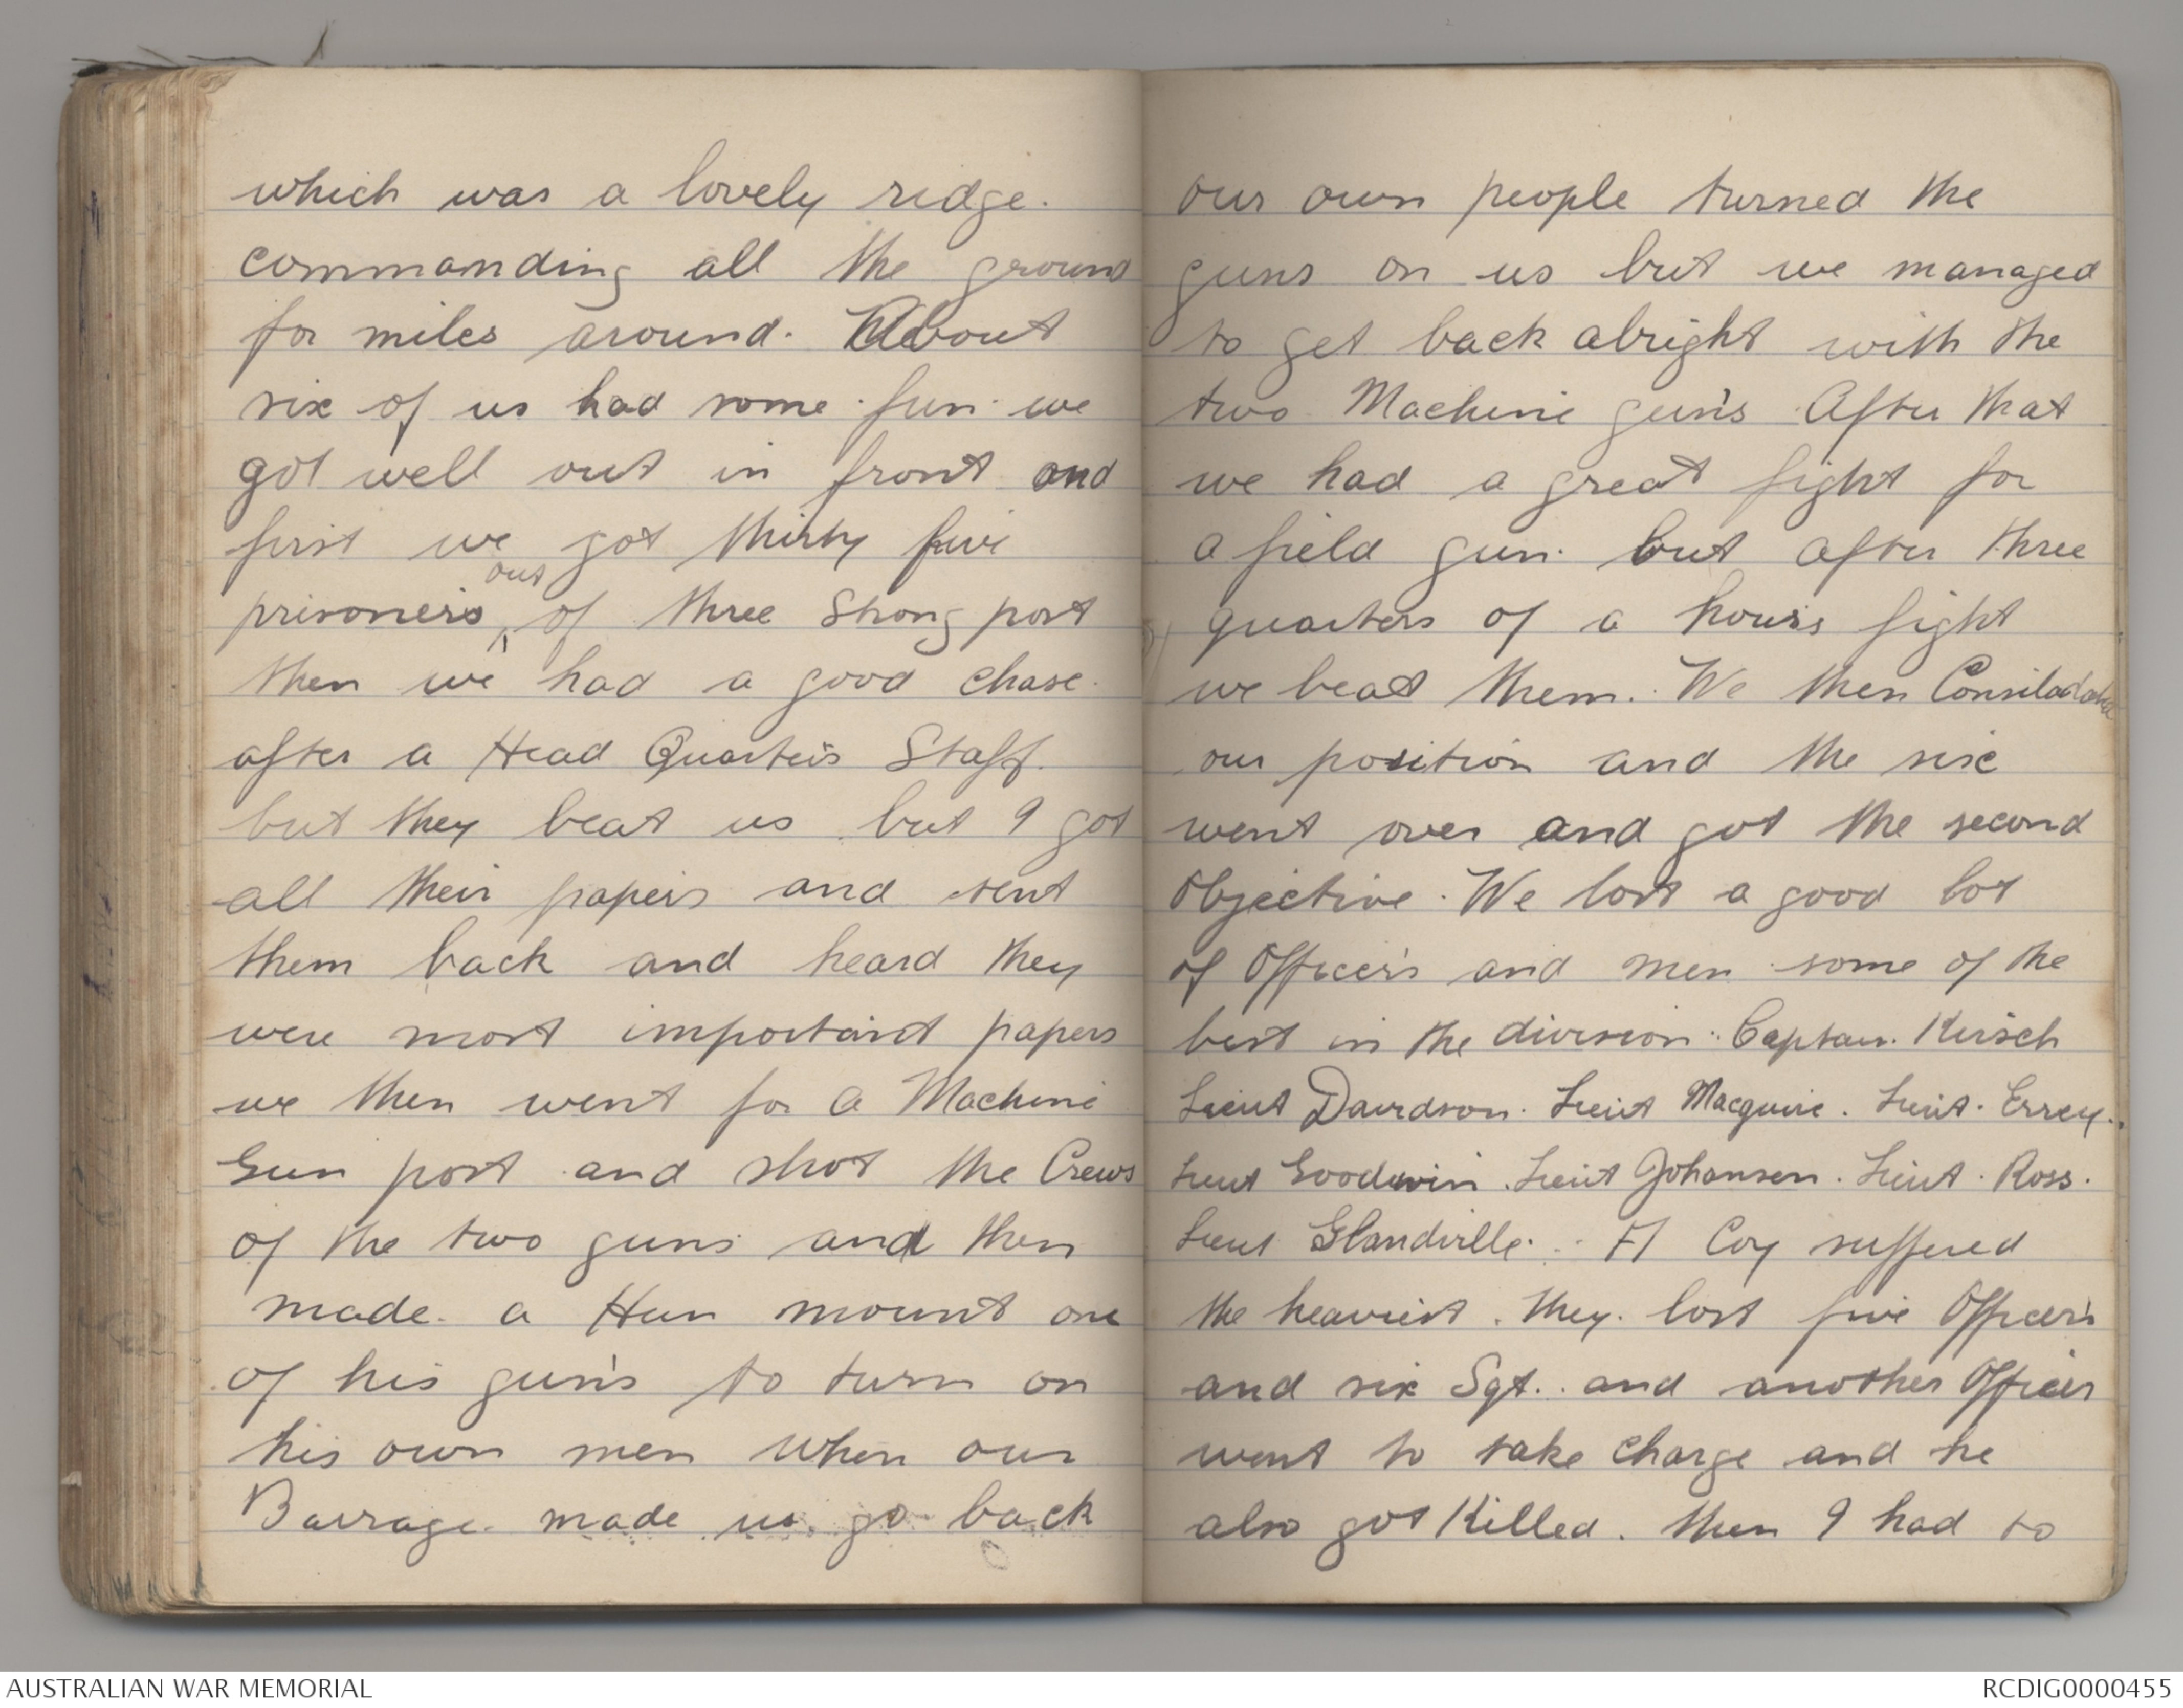 which was a lovely ridge.
commanding all the ground
for miles around. About
six of us had some fun we
got well out in front and
first we got thirty five
out
prisoners, of three Strong post
then we had a good chase.
after a Head Quarters Staff.
but they beat us but I got
all their papers and sent
them back and heard they
were most important papers
we then went for a Machine
Gun post and shot the Crews
of the two guns and then
made a Hun mount one
of his gun's to turn on
his own men when our
Barrage made us go back
our own people turned the
guns on us but we managed
to get back alright with the
two Machine gun's After that
we had a great fight for
a field gun but after three
quarters of a hours fight
we beat them. We then
our position and the six
went over and got the second
Objective. We lost a good lot
of Officer's and men some of the
best in the division. Captain. Kirsch
Lieut Davidson. Lieut Macguire. Lieut. Errey.
Lieut Goodwin. Lieut Johansen. Lieut. Ross.
Lieut Glandville. A Coy suffered
the heaviest. they lost five Officer's
and six Sgt. and another Officer
went to take charge and he
also got Killed. then I had to
AUSTRALIAN WAR MEMORIAL
RCDIG0000455